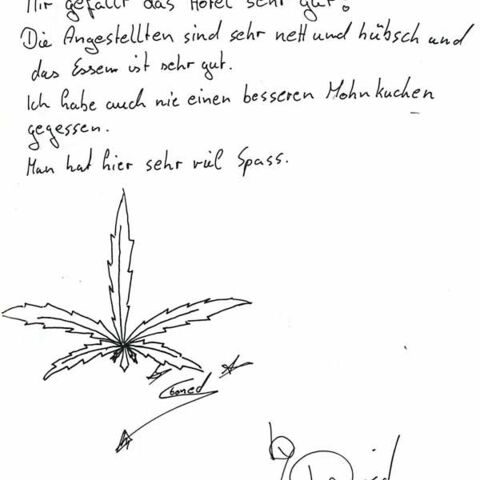 Mir gefällt das Hotel sehr gut.
Die Angestellten sind sehr nett und hübsch und
das Essen ist sehr gut.
Ich habe auch nie einen besseren Mohnkuchen
gegessen.
Man hat hier sehr viel Spass.
by